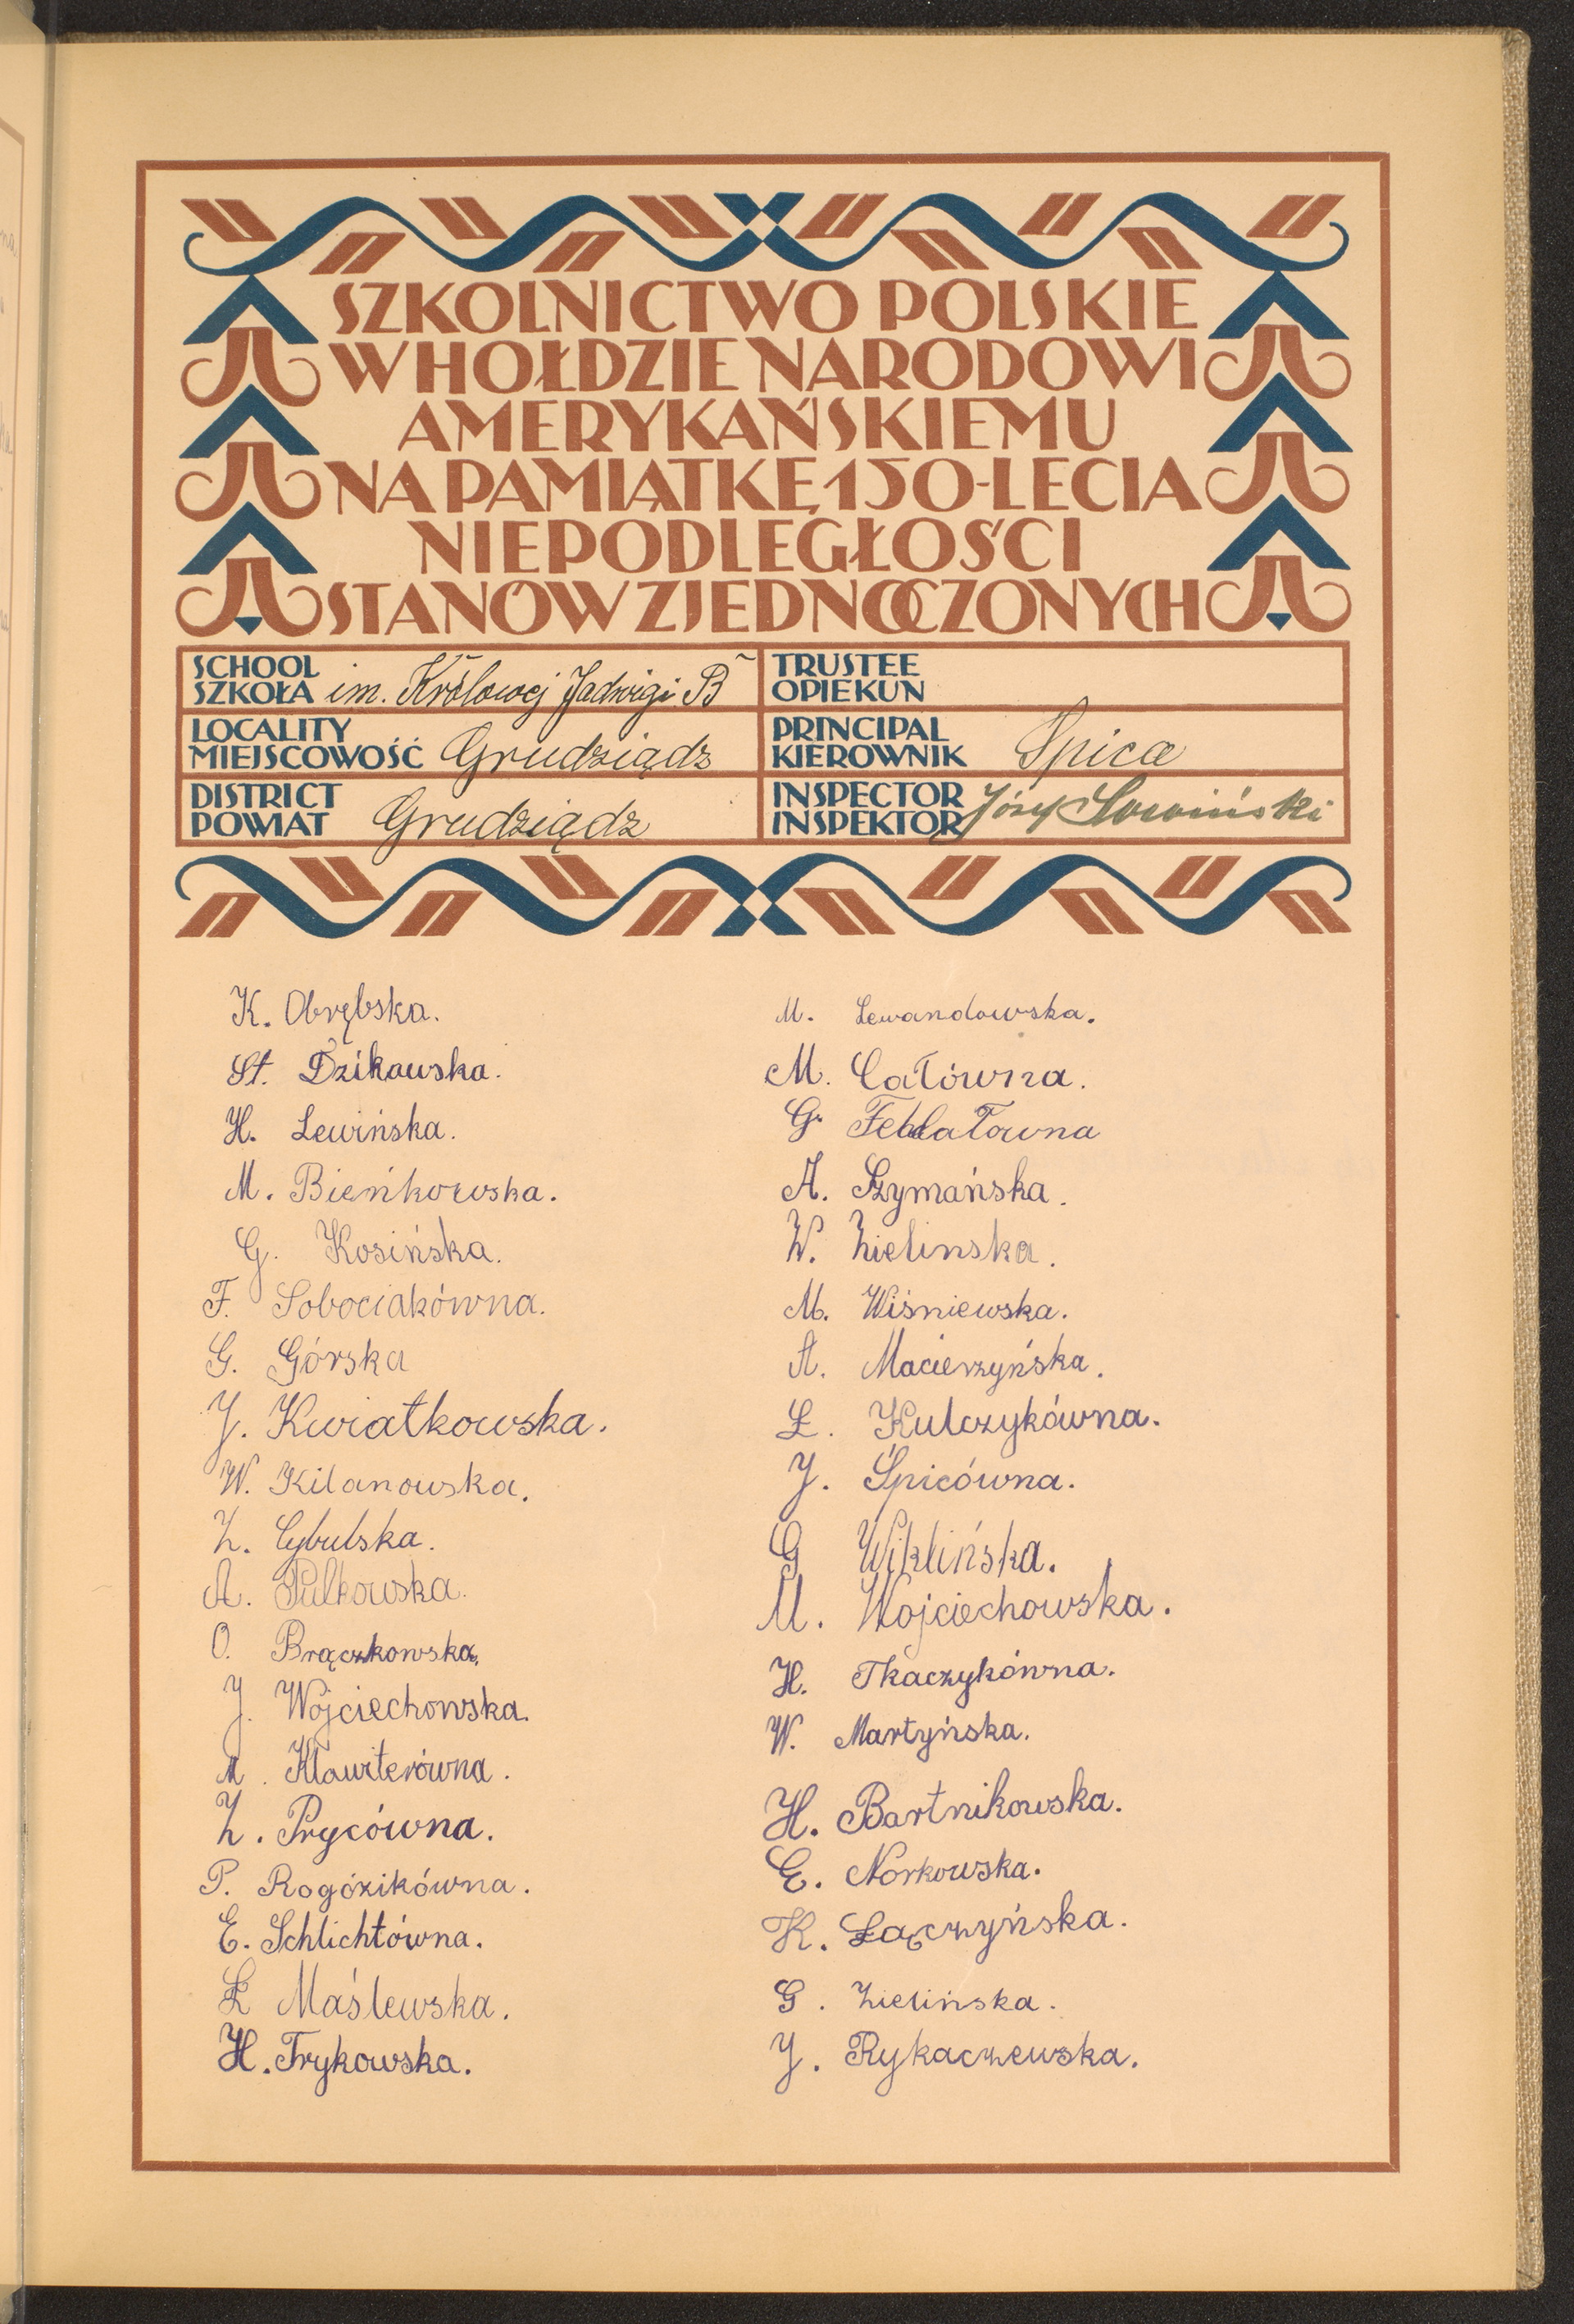 SZKOLNICTWO POLSKIE
W HOŁDZIE NARODOWI
AMERYKAŃSKIEMU
NA PAMIĄTKĘ 150-LECIA
NIEPODLEGŁOŚCI
STANÓW ZJEDNOCZONYCH
SCHOOL
SZKOŁA im. Królowej Jadwigi B
LOCALITY
MIEJSCOWOŚĆ Grudziądz
DISTRICT
POWIAT Grudziądz
TRUSTEE
OPIEKUN
PRINCIPAL
KIEROWNIK Spica
INSPECTOR
INSPEKTOR Józef
K. Obrębska.
St. Dzikowska.
H. Lewińska.
M. Bieńkowska.
G. Kosińska.
F. Sobociakówna.
G. Górska
J. Kwiatkowska.
W. Kilanowska.
Z. Cybulska.
A. Pulkowska.
O. Brączkowska.
J. Wojciechowska.
M. Klawiterówna.
Z. Prycówna.
P. Rogózikówna.
E. Schlichtówna.
Ł Maślewska.
H. Trykowska.
M. Lewandowska.
M. Całówna.
G.
A. Szymańska.
W. Zielinska.
M. Wiśniewska.
A. Macierzyńska.
Ł. Kulczykówna.
J. Śpicówna.
G Wiklińska.
M. Wojciechowska.
H. Tkaczykówna.
W. Martyńska.
H. Bartnikowska.
E. Norkowska.
K. Łączyńska.
G. Zielińska.
J. Rykaczewska.